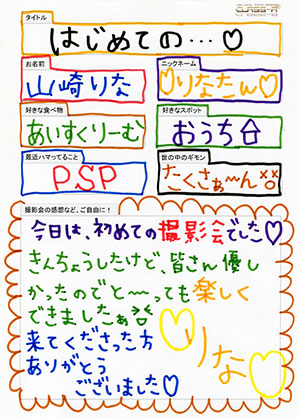 タイトル
はじめての…♡
お名前
山崎りな
ニックネーム
♡りなたん♡
好きな食べ物
あいすくりーむ
好きなスポット
おうち
最近ハマってること
PSP
世の中のギモン
たくさぁ〜ん
撮影会の感想など、ご自由に!
今日は、初めての撮影会でした♡
きんちょうしたけど、皆さん優し
かったのでと〜っても楽しく
できましたぁ
来てくださった方
ありがとう
ございました♡
♡りな♡